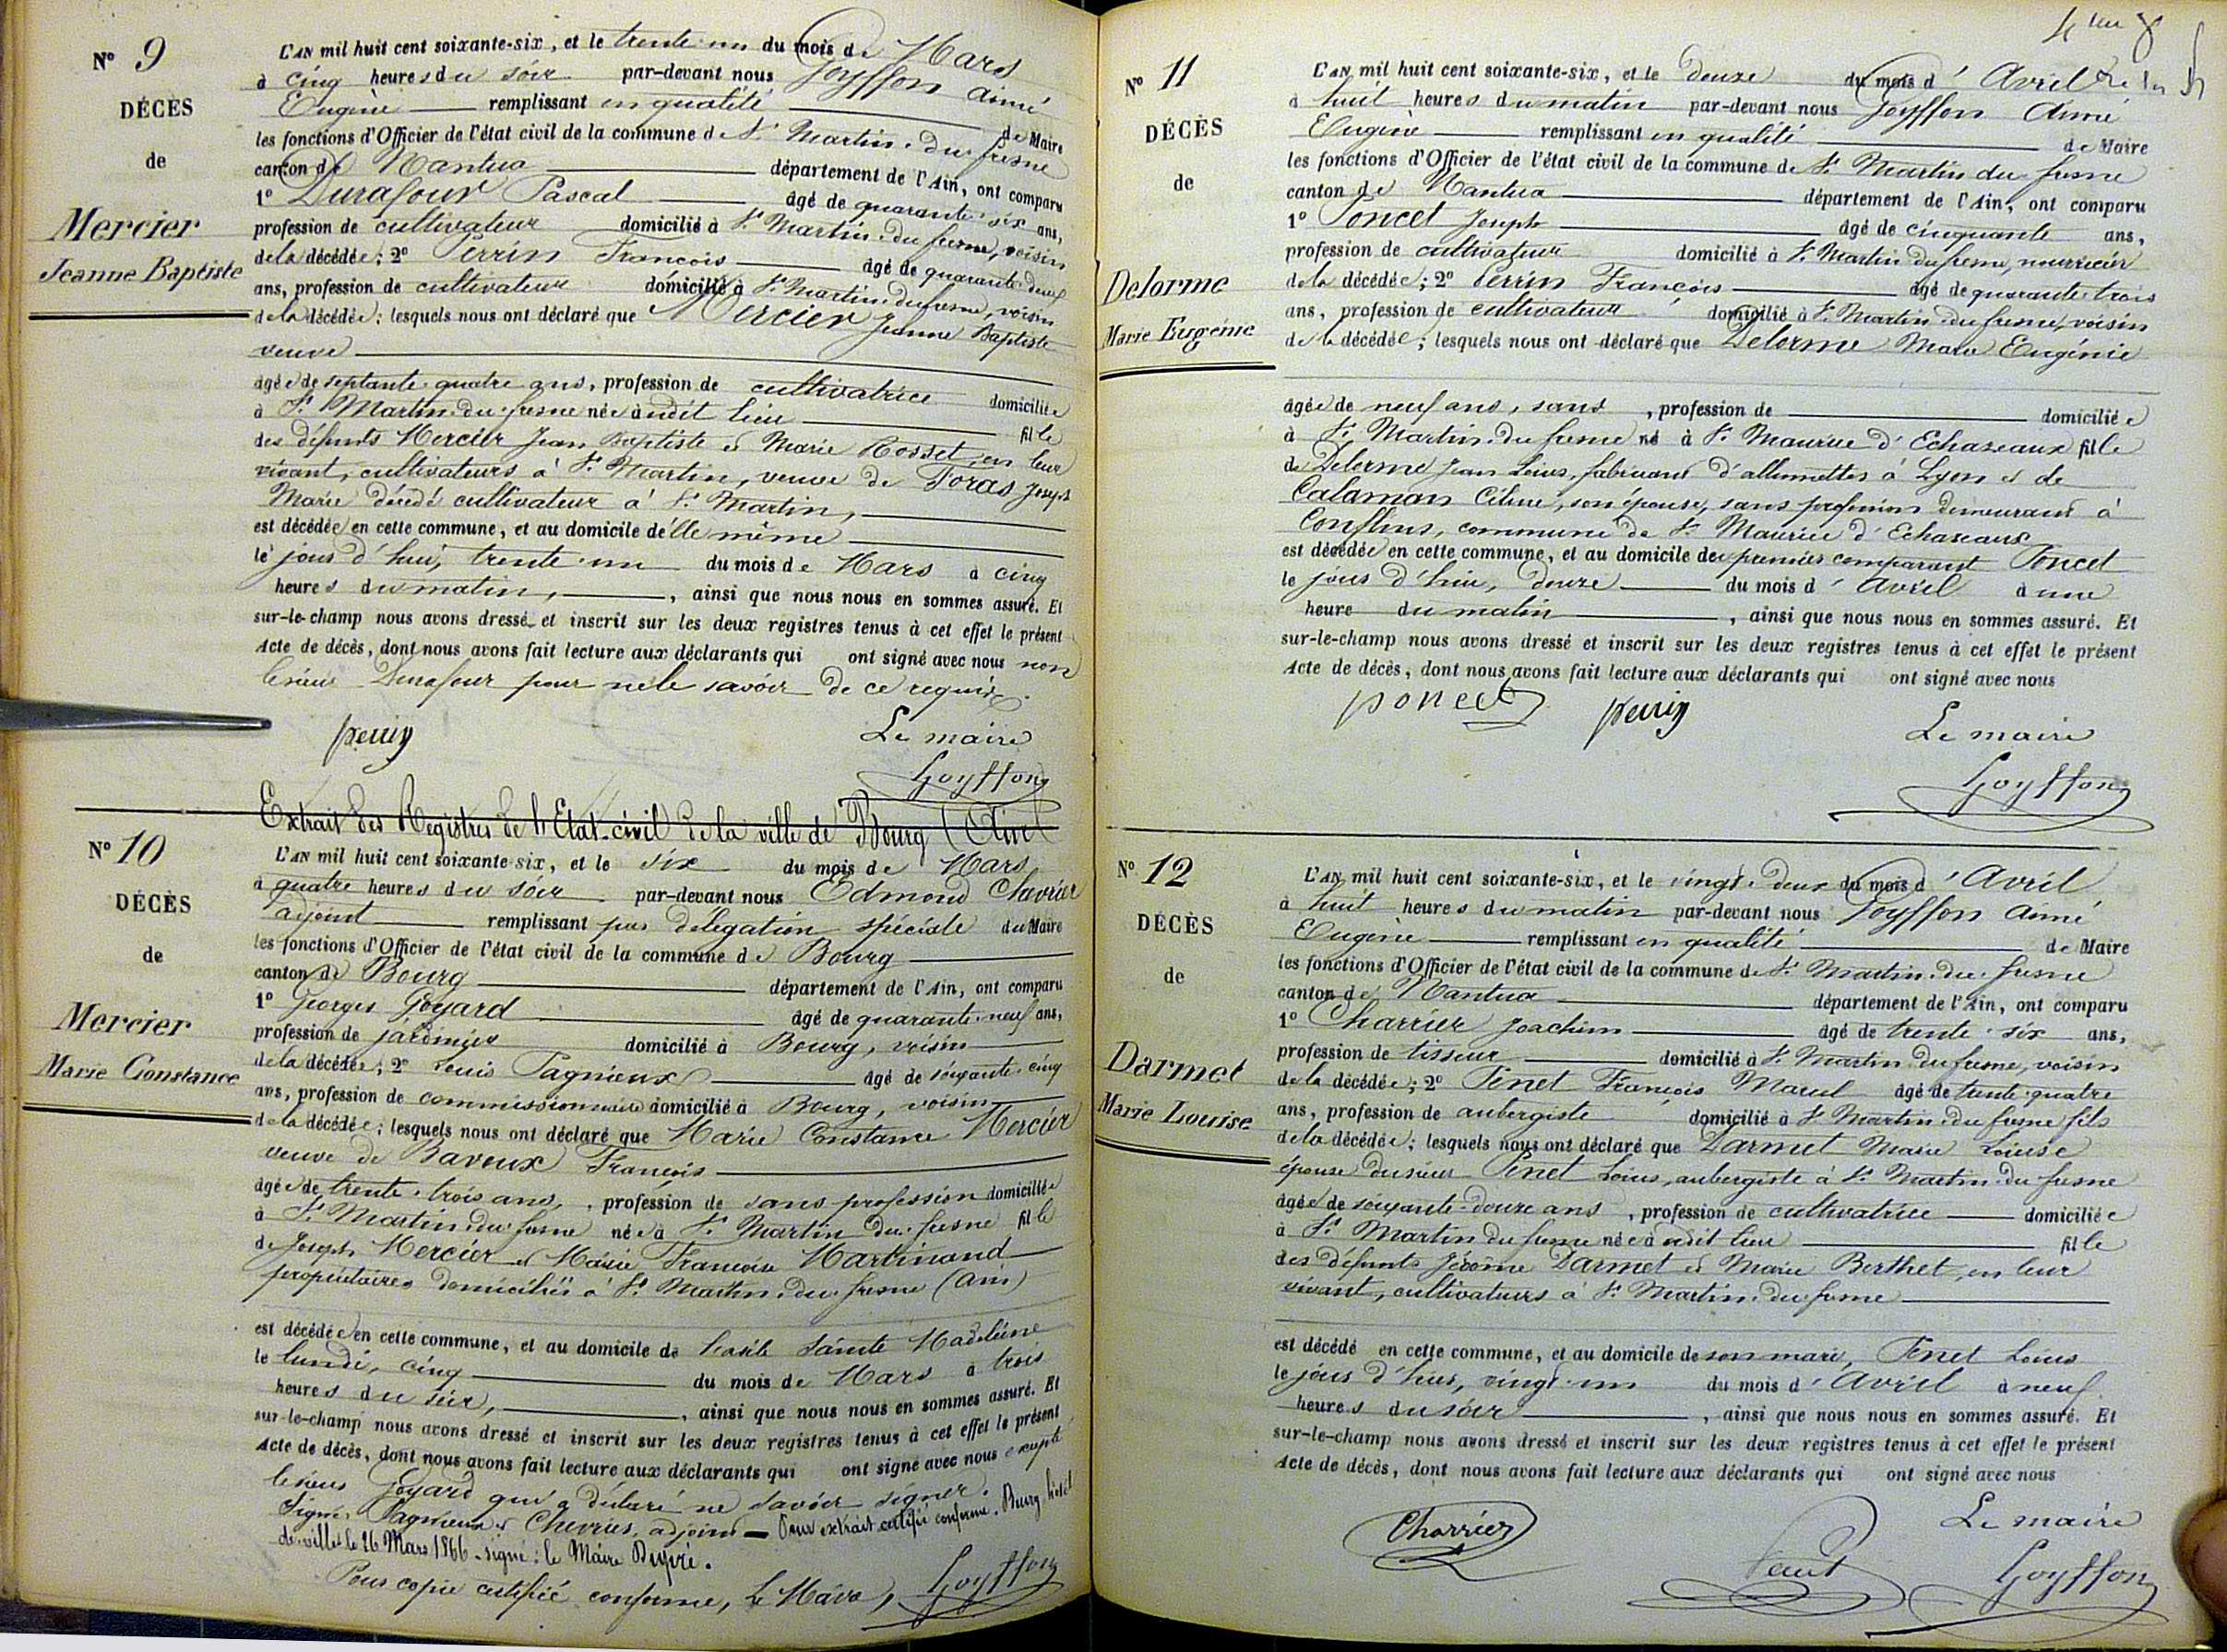 N° 9
DÉCÈS
de
Mercier
Jeanne Baptiste
L'AN mil huit cent soixante-six, et le trente un du mois de Mars
à cinq heures du soir par-devant nous Goyffon Aimé
Eugène remplissant en qualité de Maire
les fonctions d'Officier de l'état civil de la commune de St Martin-du-fresne
canton de Nantua département de l'Ain, ont comparu
1° Durafour Pascal âgé de quarante-six ans,
profession de cultivateur domicilié à St Martin-du-fresne, voisin
de la décédée; 2° Perrin François âgé de quarante-deux
ans, profession de cultivateur domicilié à St Martin-du-fresne, voisin
de la décédée; lesquels nous ont déclaré que Mercier Jeanne Baptiste
veuve
âgée de septante-quatre ans, profession de cultivatrice domiciliée
à St Martin-du-fresne née audit lieu fille
des défunts Mercier Jean Baptiste et Marie Rosset, en leur
vivant, cultivateurs à St Martin, veuve de Foras Joseph
Marie décédé cultivateur à St Martin,
est décédée en cette commune, et au domicile d'elle même
le jour d'hui, trente-un du mois de Mars à cinq
heures du matin, , ainsi que nous nous en sommes assuré. Et
sur-le-champ nous avons dressé et inscrit sur les deux registres tenus à cet effet le présent
Acte de décès, dont nous avons fait lecture aux déclarants qui ont signé avec nous non
le sieur Durafour pour ne le savoir de ce requis.
perrin Le maire
Goyffon
Extrait des Registres de l'Etat-civil de la ville de Bourg (Ain)
N° 10
DÉCÈS
de
Mercier
Marie Constance
L'AN mil huit cent soixante-six, et le six du mois de Mars
à quatre heures du soir par-devant nous Edmond Chevrier
adjoint remplissant par délégation spéciale du Maire
les fonctions d'Officier de l'état civil de la commune de Bourg
canton de Bourg département de l'Ain, ont comparu
1° Georges Goyard âgé de quarante-neuf ans,
profession de jardinier domicilié à Bourg, voisin
de la décédée; 2° Louis Pagnieux âgé de soixante-cinq
ans, profession de commissionnaire domicilié à Bourg, voisin
de la décédée; lesquels nous ont déclaré que Marie Constance Mercier
veuve de Baveux François
âgée de trente-trois ans, , profession de sans profession domiciliée
à St Martin-du-fresne née à St Martin-du-fresne fille
de Joseph Mercier et Marie Françoise Martinand
propriétaires domiciliés à St Martin-du-fresne (Ain)
est décédée en cette commune, et au domicile de l'asile Sainte Madeleine
le lundi, cinq du mois de Mars à trois
heures du soir, , ainsi que nous nous en sommes assuré. Et
sur-le-champ nous avons dressé et inscrit sur les deux registres tenus à cet effet le présent
Acte de décès, dont nous avons fait lecture aux déclarants qui ont signé avec nous excepté
le sieur Goyard qui a déclaré ne savoir signer.
Signé: Pagnieux et Chevrier, adjoint — Pour extrait certifié conforme. Bourg hôtel
de-ville le 26 Mars 1866 - signé: le Maire
Pour copie certifiée conforme, Le Maire, Goyffon
N° 11
DÉCÈS
de
Delorme
Marie Eugénie
L'AN mil huit cent soixante-six, et le douze du mois d'Avril
à huit heures du matin par-devant nous Goyffon Aimé
Eugène remplissant en qualité de Maire
les fonctions d'Officier de l'état civil de la commune de St Martin-du-fresne
canton de Nantua département de l'Ain, ont comparu
1° Poncet Joseph âgé de cinquante ans,
profession de cultivateur domicilié à St Martin-du-fresne, nourricier
de la décédée; 2° Perrin François âgé de quarante-trois
ans, profession de cultivateur domicilié à St Martin-du-fresne, voisin
de la décédée; lesquels nous ont déclaré que Delorme Marie Eugénie
âgée de neuf ans, sans , profession de domiciliée
à St Martin-du-fresne né à St Maurice d'Echazeaux fille
de Delorme Jean Louis, fabricant d'allumettes à Lyon et de
Calaman Céline, son épouse, sans profession demeurant à
Conflins, commune de St Maurice d'Echazeaux
est décédée en cette commune, et au domicile du premier comparant Poncet
le jour d'hui, douze du mois d'Avril à une
heure du matin , ainsi que nous nous en sommes assuré. Et
sur-le-champ nous avons dressé et inscrit sur les deux registres tenus à cet effet le présent
Acte de décès, dont nous avons fait lecture aux déclarants qui ont signé avec nous
poncet perrin Le maire
Goyffon
N° 12
DÉCÈS
de
Darmet
Marie Louise
L'AN mil huit cent soixante-six, et le vingt-deux du mois d'Avril
à huit heures du matin par-devant nous Goyffon Aimé
Eugène remplissant en qualité de Maire
les fonctions d'Officier de l'état civil de la commune de St Martin-du-fresne
canton de Nantua département de l'Ain, ont comparu
1° Charrier Joachim âgé de trente-six ans,
profession de tisseur domicilié à St Martin-du-fresne, voisin
de la décédée; 2° Penet François Marcel âgé de trente-quatre
ans, profession de aubergiste domicilié à St Martin-du-fresne fils
de la décédée; lesquels nous ont déclaré que Darmet Marie Louise
épouse du sieur Penet Louis, aubergiste à St Martin-du-fresne
âgée de soixante-douze ans , profession de cultivatrice domiciliée
à St Martin-du-fresne née audit lieu fille
des défunts Jérôme Darmet et Marie Berthet, en leur
vivant, cultivateurs à St Martin-du-fresne
est décédé en cette commune, et au domicile de son mari, Penet Louis
le jour d'hier, vingt-un du mois d'Avril à neuf
heures du soir , ainsi que nous nous en sommes assuré. Et
sur-le-champ nous avons dressé et inscrit sur les deux registres tenus à cet effet le présent
Acte de décès, dont nous avons fait lecture aux déclarants qui ont signé avec nous
Charrier Penet Le maire
Goyffon